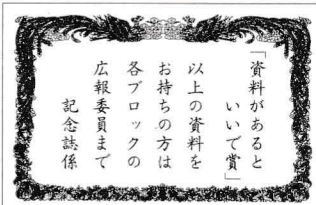 「資料があると
いいで賞」
以上の資料を
お持ちの方は
各ブロックの
広報委員まで
記念誌係